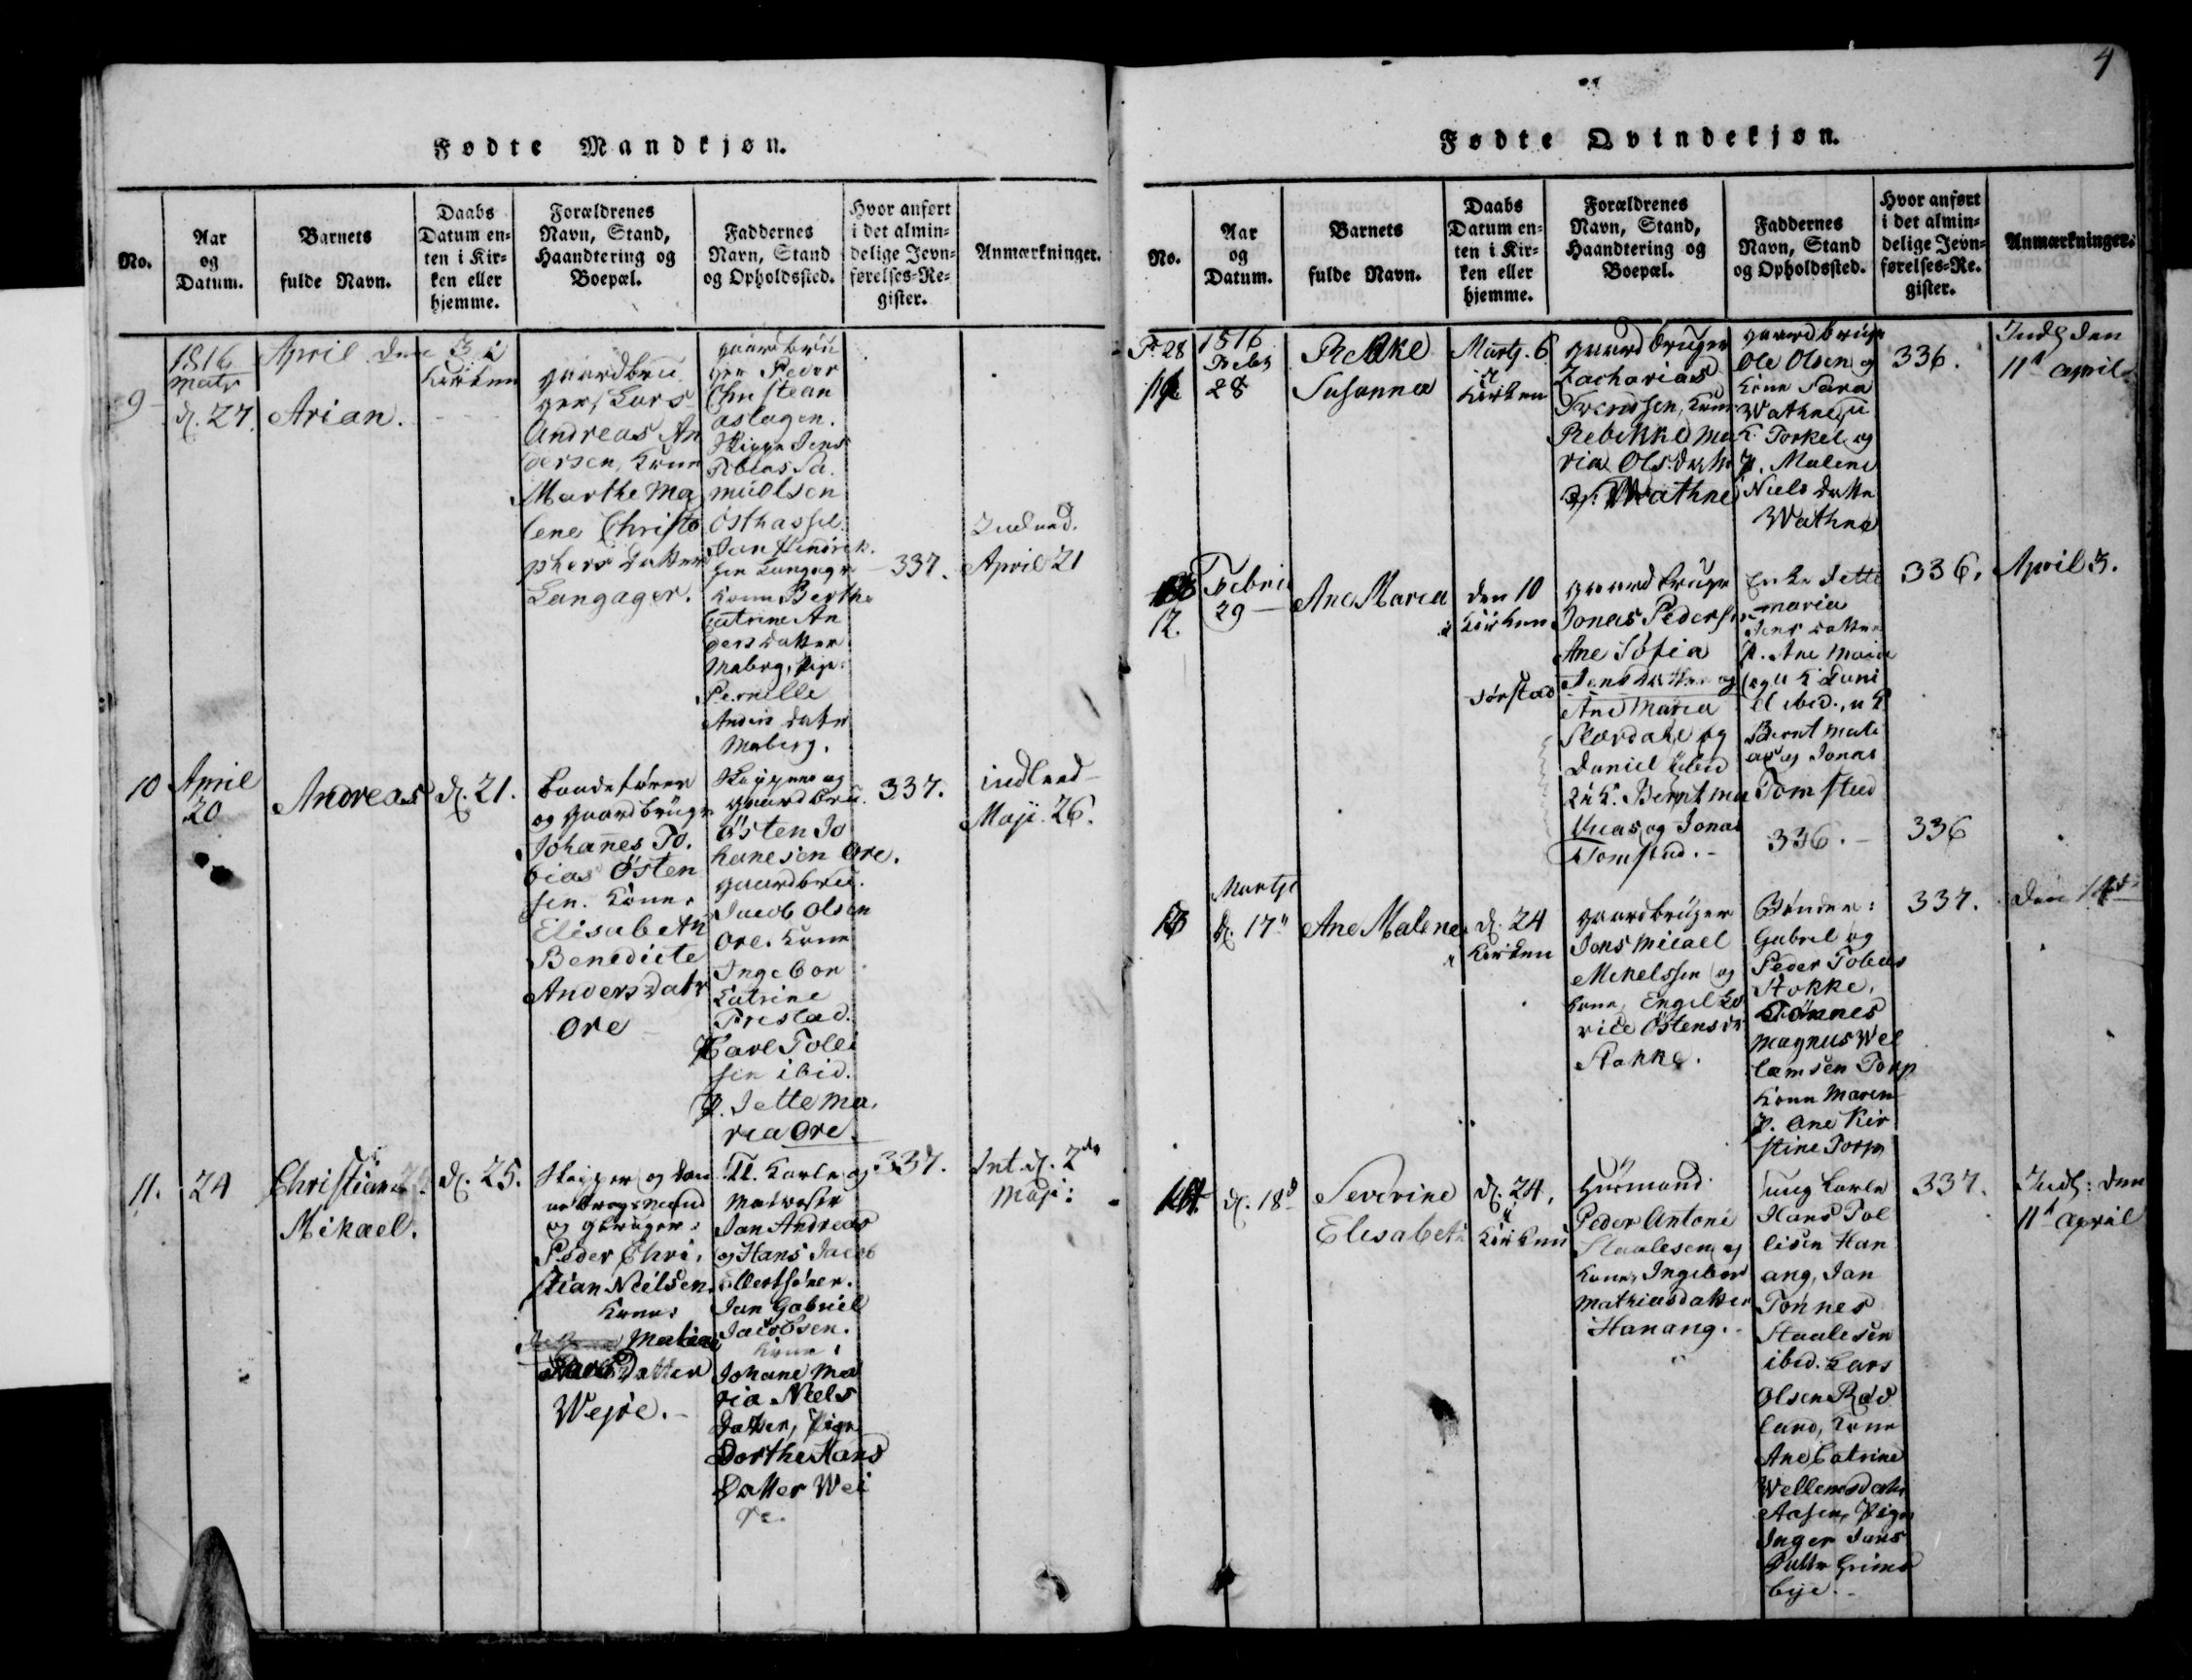 Fødte Mandkjøn.
No.
Aar
og
Datum.
Barnets
fulde Navn.
Daabs
Datum en-
ten i Kir-
ken eller
hjemme.
Forældrenes
Navn, Stand,
Haandtering og
Boepæl.
Faddernes
Navn, Stand
og Opholdssted.
Hvor anført
i det almin-
delige Jevn-
førelses-Re-
gister.
Anmærkninger.
9
1816
d. 27
April den 3 i
Kirken
Arian.
gaardbru
ger, Lars
Andreas An
dersen, Kone
Marthe Ma
lene Christo
phers datter
Langager.
gaardbru
ger Peder
Christean
aslagen.
Skipper Jens
Tobias Sa
muelsen
Østhassel.
Jan Hendrik
sen Langager
Kone Berthe
Catrine An
ders datter
Maberg, Pige
Pernille
Anders datter
Maberg.
337.
April 21
10
April
20
Andreas
d. 21.
og gaardbruger
Johannes To
bias Østen
sen. Kone
Elisabeth
Benedicte
Andersdatr
Ore
Skipper og
gaardbru.
Østen Jo
hanesen Ore.
gaardbru.
Jacob Olsen
Ore. Kone
Ingebor
Catrine
Frestad.
Carl Tolli
sen ibid.
P. Jette Ma
ria Ore.
337.
indlead
Maji 26.
11.
24
Christian
Mikael.
d. 25.
Skipper og Dan
nebrogsmand
og gbruger
Peder Chri
stian Nielsen.
Kone
Datter
Wejre.
U. Karle og
Matroser
Jan Andreas
og Hans Jacob
Ellertsøner.
Jan Gabriel
Jacobsen.
Kone
Johane Ma
ria Niels
datter, Pige
Dorthe Hans
Datter Wei
re.
337.
Int. d. 2de
Maji:
4
Fødte Qvindekjøn.
No.
Aar
og
Datum.
Barnets
fulde Navn.
Daabs
Datum en-
ten i Kir-
ken eller
hjemme.
Forældrenes
Navn, Stand,
Haandtering og
Boepæl.
Faddernes
Navn, Stand
og Opholdssted.
Hvor anført
i det almin-
delige Jevn-
førelses-Re-
gister.
Anmærkninger.
1816
Feb
28
Susanna
Martj. 6
i
Kirken
gaardbruger
Zacharias
Kone
Rebekke Ma
ria Olsdattr
Wathne
gaardbruger
Ole Olsen og
Kone Sara
Wathne, u
K. Torkel og
P. Malene
Niels datter
Wathne
336.
Indl. den
11t April
12.
Febri
29
Ane Maria
den 10
i Kirken
gaardbruger
Jonas Pedersen
Ane Sofia
Jens datter og
Ane Maria
og
Daniel ibid
u K. Bernt Ma
thias og Jonas
Tomstad.
Enke Jette
Maria
Jens datter
P. Ane Marie
og u K Dani
el ibid., u K
Bernt Mathi
as og Jonas
Tomstad
336.
336.
336
April 3.
13
Martji
d. 17
Ane Malene
d. 24
i Kirken
gaardbruger
Jens Micael
Mikelssen og
Kone, Engel Lo
vice Østensdr
Stokke.
Bønder:
Gabrel og
Peder Tobias
Stokke,
Tønnes
Magnus Wel
lamsen Torp
Kone Maren
P. Ane Kir
stine Torp
337.
den 14de
14.
d. 18d
Severine
Elisabeth
d. 24,
i
Kirken
Husmand
Peder Antoni
Staalesen og
Kone, Ingebor
Mathiasdatter
Hanang.
ung Karle
Hans Tol
lisen Han
ang, Jan
Tønnes
Staalesen
ibid. Lars
Olsen Rød
land, Kone
Ane Catrine
Wellemsdatter
Aasen, Pige
Inger Jans
Datter Grims
bye.
337.
Indl: den
11t April